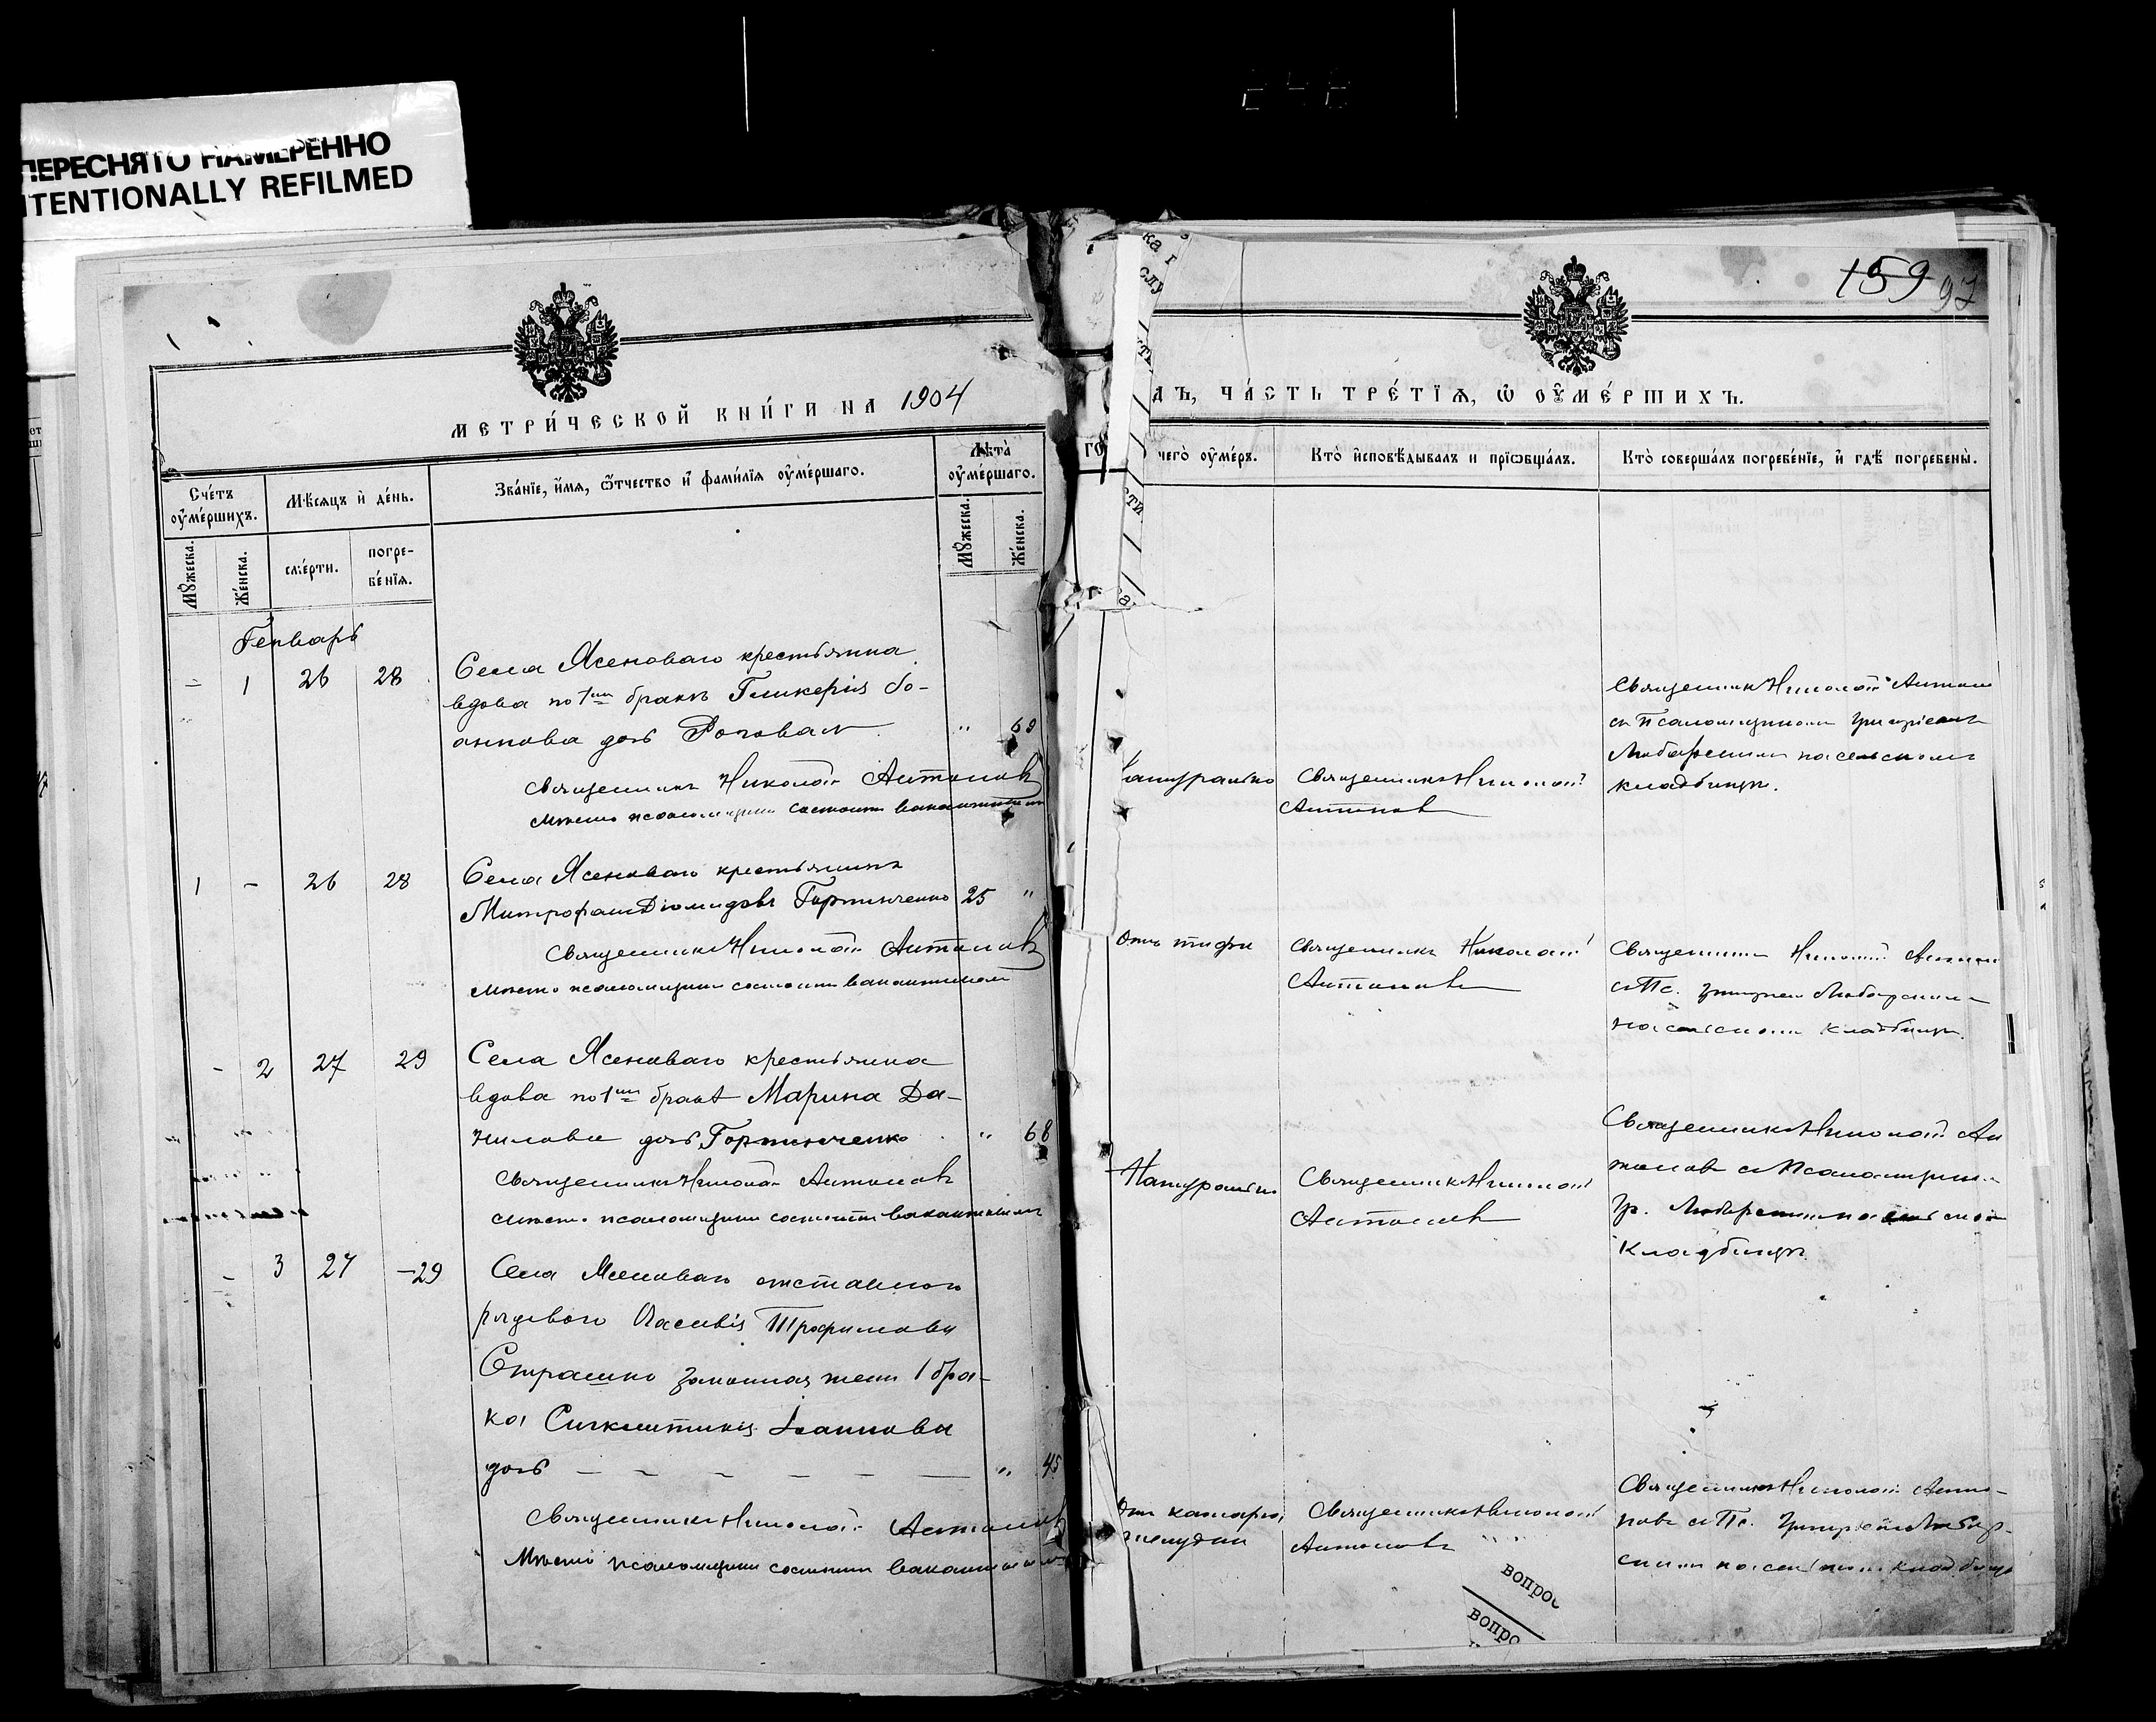 ПЕРЕСНЯТО НАМЕРЕННО
NTENTIONALLY REFILMED
159 97
МЕТРИ́ЧЕСКОЙ КНИ́ГИ НА 1904
ГО
ДЪ, ЧА́СТЬ ТРЕ́ТЇѦ, Ѡ҆ ОУ҆МЕ́РШИХЪ.
Сче́тъ оу҆ме́ршихъ.
Мѣ́сяцъ и҆ де́нь.
Зва́нїе, и҆́мя, ѻ҆́тчество и҆ фами́лїя оу҆ме́ршаго.
Лѣ́та оу҆ме́ршаго.
чего̀ оу҆ме́ръ.
Кто̀ и҆сповѣ́дывалъ и прїѡбща́лъ.
Кто̀ соверша́лъ погребе́нїе, и҆ гдѣ̀ погребены̀.
Мꙋ́жеска.
Же́нска.
сме́рти.
погре-
бе́нїя.
Мꙋ́жеска.
Же́нска.
Генварь
– 1 26 28
Села Ясеноваго крестьянка
вдова по 1мъ бракѣ Гликерія Іо-
аннова дочь Роговая " 69
Священникъ Николай Антоновъ
Мѣсто псаломщика состоитъ вакантнымъ
натурально
Священникъ Николай
Антоновъ
Священникъ Николай Антонов
съ псаломщикомъ Григоріемъ
Любарскимъ на сельскомъ
кладбищѣ.
1 – 26 28
Села Ясеноваго крестьянинъ
Митрофанъ Діомидовъ Гортинченко 25 "
Священникъ Николай Антоновъ
Мѣсто псаломщика состоитъ вакантнымъ
Отъ тифа
Священникъ Николай
Антоновъ
Священникъ Николай Антонов
съ Пс. Григоріем Любарскимъ
на сельскомъ кладбищѣ.
– 2 27 29
Села Ясеноваго крестьянка
вдова по 1мъ бракѣ Марина Да-
нилова дочь Гортинченко " 68
Священникъ Николай Антоновъ
Мѣсто псаломщика состоитъ вакантнымъ
Натурально
Священникъ Николай
Антоновъ
Священникъ Николай Ан
тоновъ съ Псаломщиком
Гр. Любарскимъ на сельском
кладбищѣ.
– 3 27 – 29
Села Ясеноваго отставного
рядового Трофимова
Страшко законная жена 1 бра-
ка Синклитикія Іоаннова
дочь – – – – – – " 45
Священникъ Николай Антоновъ
Мѣсто псаломщика состоитъ вакантнымъ
Отъ катарра
желудка
Священникъ Николай
Антоновъ
Священникъ Николай Анто-
новъ съ Пс. Григоріемъ Любар-
скимъ на сельскомъ кладбищѣ
вопрос
вопро